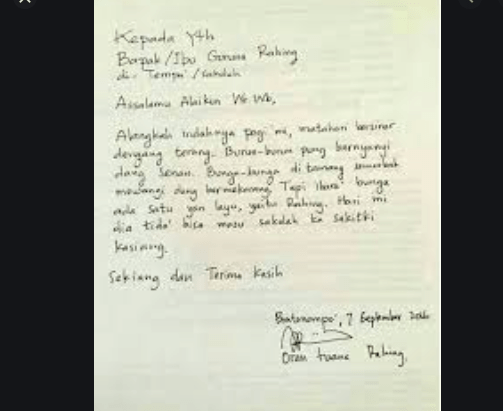 Kepada Yth
Bappak/Ibu Guruna Rahing
di- Tempa'/sakolah
Assalamu Alaikun Wr Wb,
Alangkah indahnya pagi ini, matahari bersinar
dengang terang. Burun-burun pung bernyanyi
dang senan. Bunga-bunga di tamang semerbak
mewangi dang bermekarang. Tapi ibara' bunga
ada satu yan layu, yaitu Rahing. Hari ini
dia tida' bisa masu sakolah ka sakitki
kasiang.
Sekiang dan Terima kasih
Bontonompo', 7 September
Oran tuana Rahing.